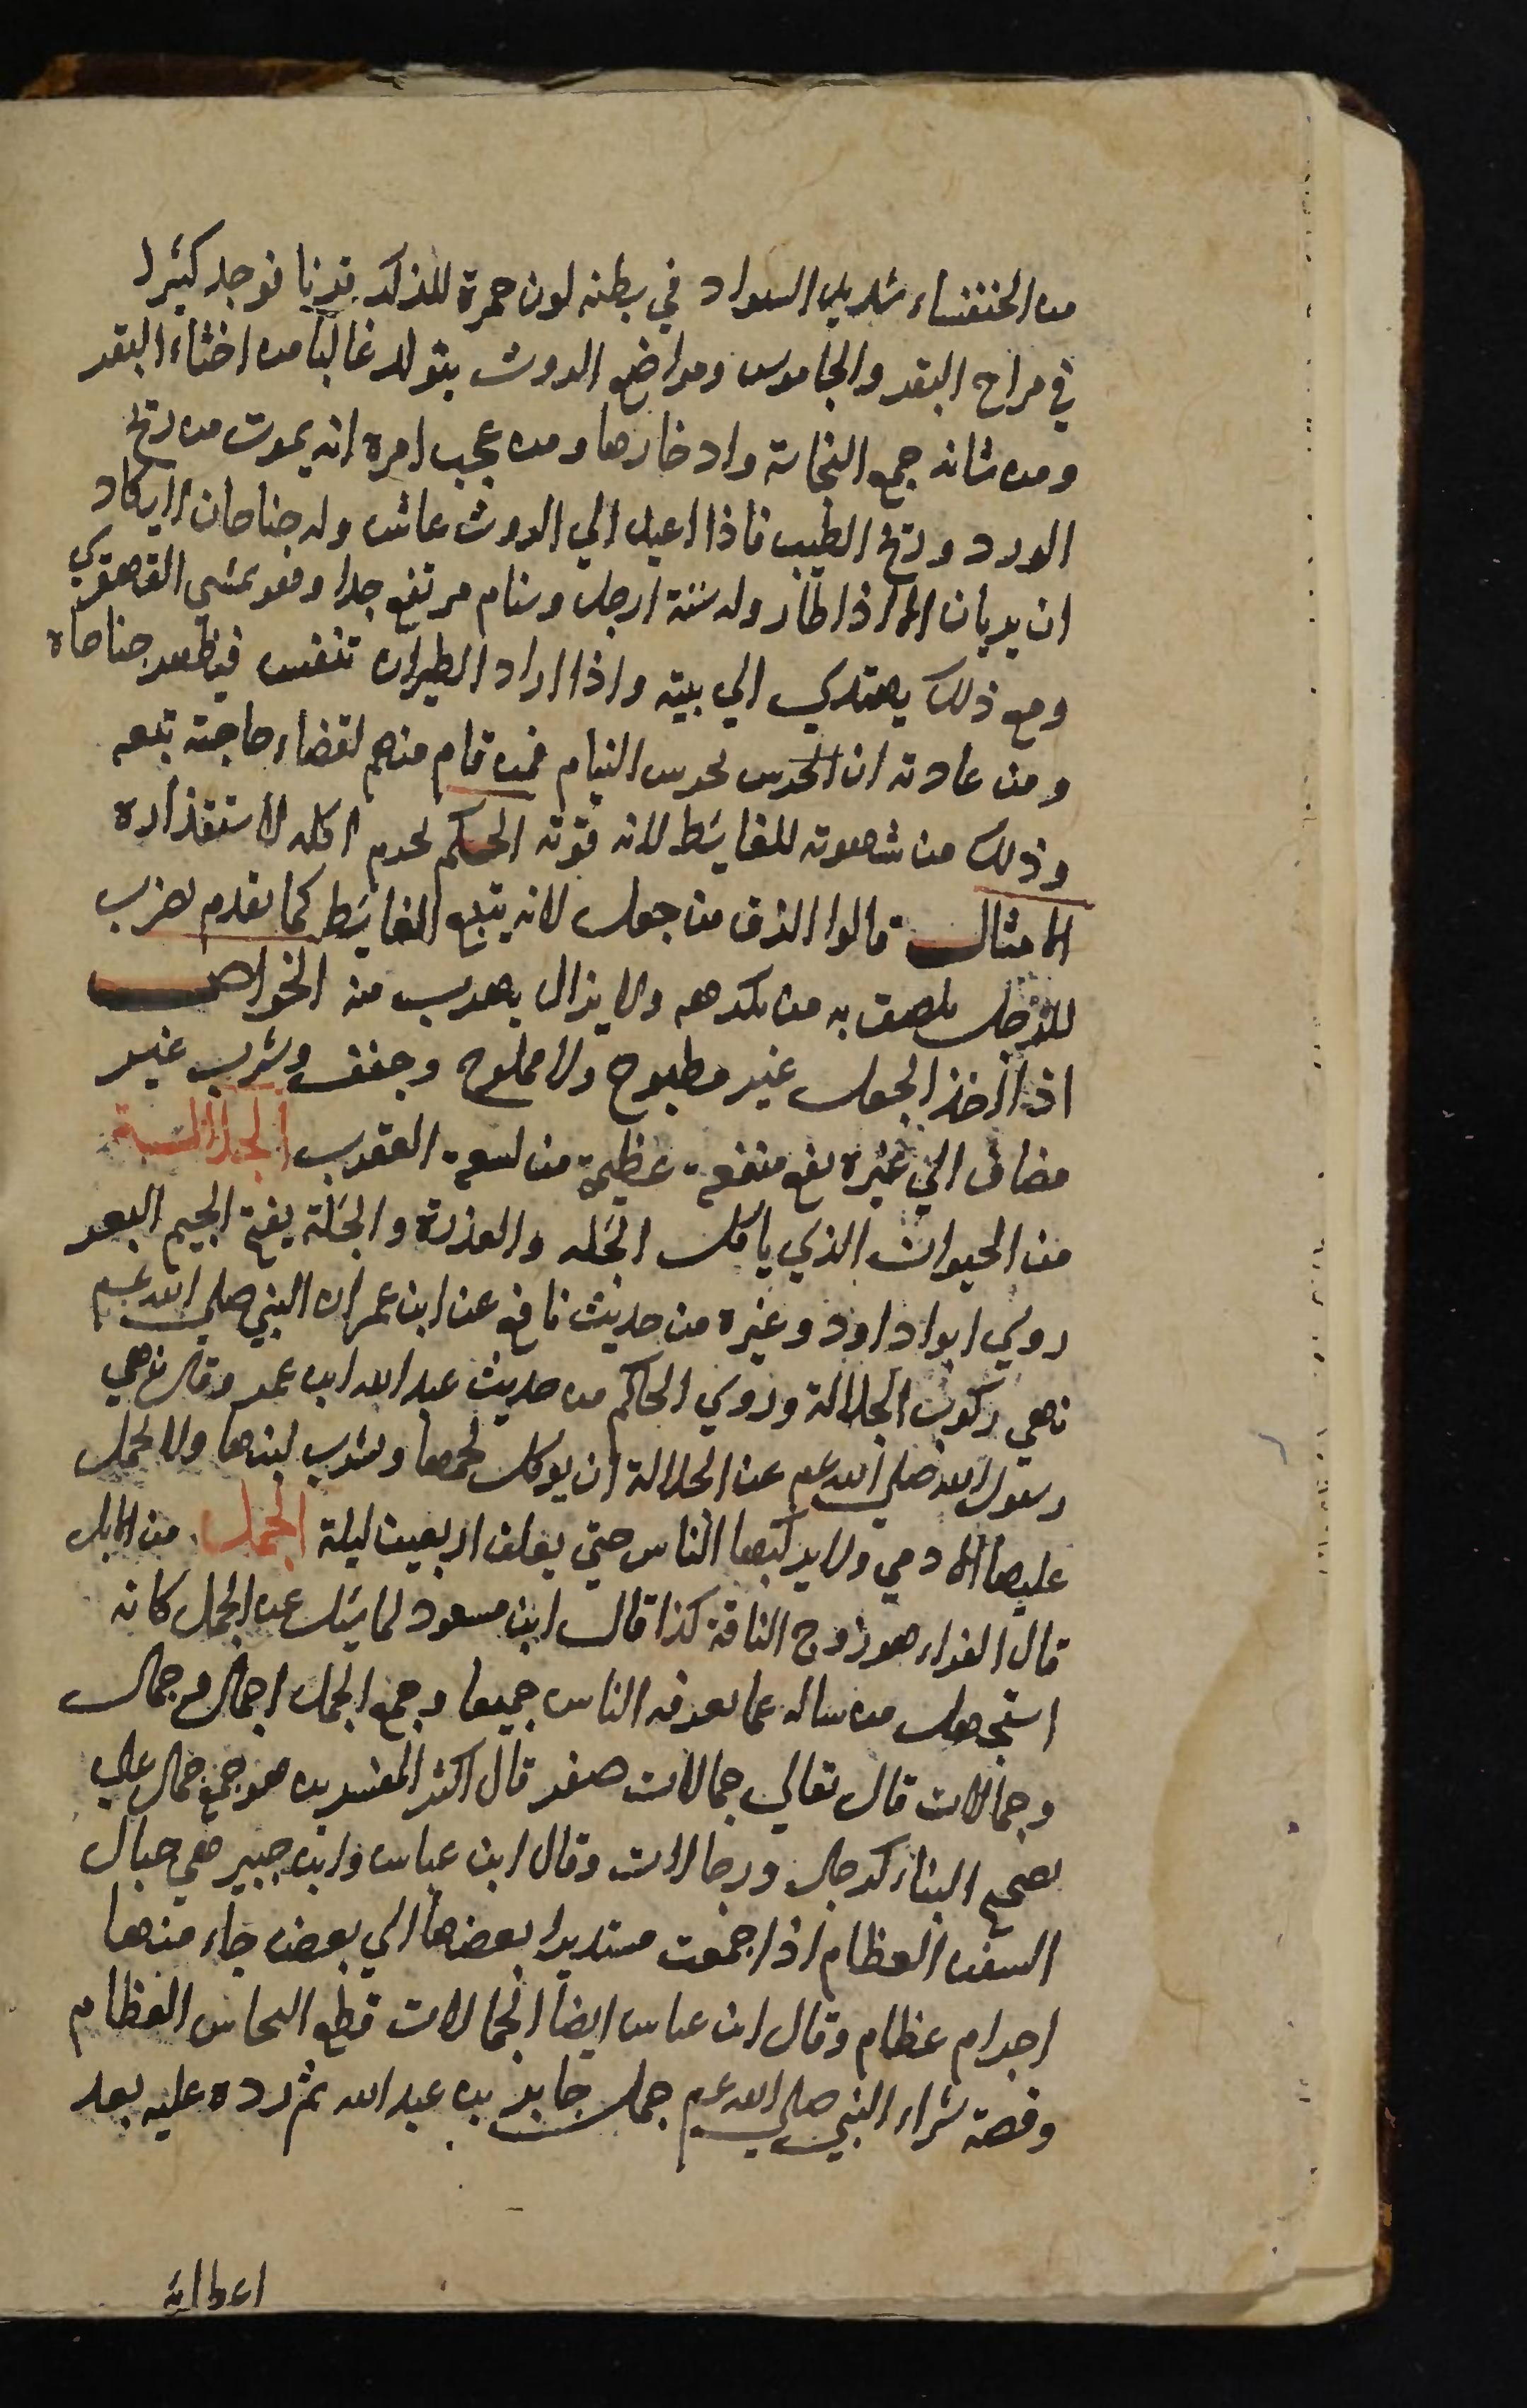 من الخنفساء شديد السواد في بطنه لون حمرة للذكر قرنان يوجد كثيرا
في مراح البقر والجاموس ومواضع الروث يتولد غالبا من اخثاء البقر
ومن شانه جمع النجاسة وادخارها ومن عجب امره انه يموت من ريح
الورد وريح الطيب فاذا اعيد الي الروث عاش وله جناحان لا يكاد
ان يريان الا اذا طار وله ستة ارجل وسنام مرتفع جدا وهو يمشي القهقري
ومع ذلك يهتدي الي بيته واذا اراد الطيران تنفس فيظهر جناحاه
ومن عادته ان الحرس يحرس النيام فمن قام منهم لقضاء حاجته تبعه
وذلك من شهوته للغايط لانه قوته الحكم يحرم اكله لاستقذاره
الامثال قالوا الزق من جعل لانه يتبع الغايط كما تقدم يضرب
للرجل يلصق به من يكرهه ولا يزال يهرب منه الخواص
اذا اخذ الجعل غير مطبوخ ولا مملوح وجفف وشرب غير
مضاف الي غيره نفع منفعة عظيمة من لسعة العقرب الجلالة
من الحيوان الذي ياكل الجله والعذرة والجلة بفتح الجيم البعر
روي ابواداود وغيره من حديث نافع عن ابن عمر ان النبي صلي الله عم
نهي ركوب الجلالة وروي الحاكم من حديث عبد الله ابن عمر وقال نهي
رسول الله صلي الله عم عن الجلالة ان يوكل لحمها وشرب لبنها ولا يحمل
عليها الادمي ولا يركبها الناس حتي يعلف اربعين ليلة الجمل من الابل
قال الفراء هو زوج الناقة كذا قال ابن مسعود لما سئل عن الجمل كانه
استجهل من ساله عما يعرفه الناس جميعا وجمع الجمل اجمال وجمال
وجمالات قال تعالي جمالات صفر قال اكثر المفسرين هو جمع جمال علي
تصحيح البناء كرجال ورجالات وقال ابن عباس وابن جبير هي حبال
السفن العظام اذا جمعت مستديرا بعضها الي بعض جاء منها
اجرام عظام وقال ابن عباس ايضا الجمالات قطع النحاس العظام
وقصة شراء النبي صلي الله عم جمل جابر بن عبد الله ثم رده عليه بعد
اعطائه